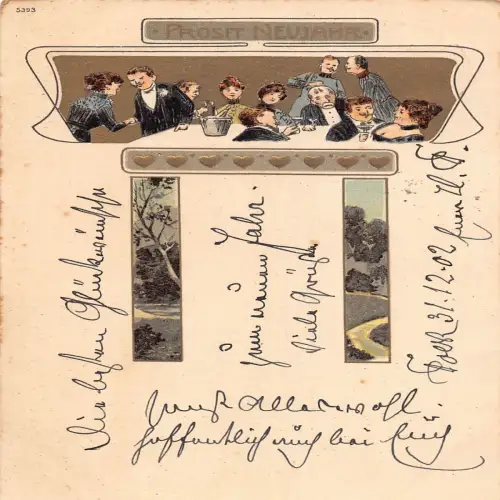 5393
PROSIT NEUJAHR
Die besten Glückwünsche
zum neuen Jahr.
Viele Grüße
31.12.02
Allerwohl.
hoffentlich auch bei Euch